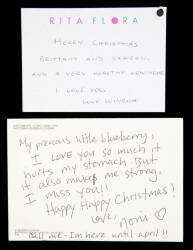 RITA FLORA
MERRY CHRISTMAS
BRITTANY AND
AND A VERY HEALTHY NEW YEAR
I LOVE YOU
LOVE WINONA
My precious little blueberry,
I love you so much it
hurts my stomach. But
it also makes me strong.
I miss you!!
Happy Happy Christmas!
Love, Noni
call me - I'm here until april!!